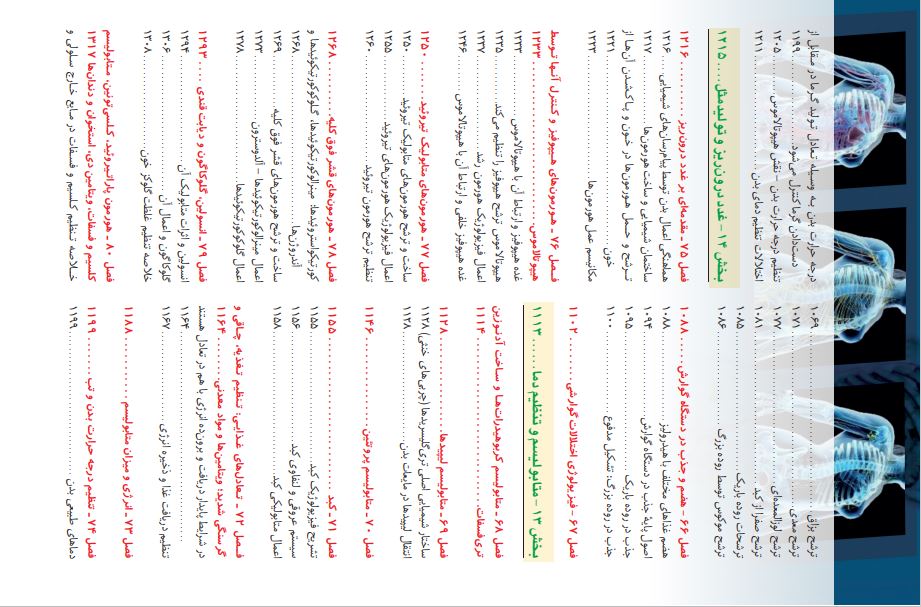 ترشح بزاق ۱۰۶۹
ترشح معدی ۱۰۷۱
ترشح لوزالمعده‌ای ۱۰۷۷
ترشح صفرا از کبد ۱۰۸۱
ترشحات روده باریک ۱۰۸۵
ترشح موکوس توسط روده بزرگ ۱۰۸۶
فصل ۶۶ ـ هضم و جذب در دستگاه گوارش ۱۰۸۸
هضم غذاهای مختلف با هیدرولیز ۱۰۸۸
اصول پایهٔ جذب در دستگاه گوارش ۱۰۹۴
جذب در روده باریک ۱۰۹۵
جذب در روده بزرگ: تشکیل مدفوع ۱۱۰۰
فصل ۶۷ ـ فیزیولوژی اختلالات گوارشی ۱۱۰۲
بخش ۱۳ – متابولیسم و تنظیم دما ۱۱۱۳
فصل ۶۸ ـ متابولیسم کربوهیدرات‌ها و ساخت آدنوزین
تری‌فسفات ۱۱۱۴
فصل ۶۹ ـ متابولیسم لیپیدها ۱۱۲۸
ساختار شیمیایی اصلی تری‌گلیسریدها (چربی‌های خنثی) ۱۱۲۸
انتقال لیپیدها در مایعات بدن ۱۱۲۸
فصل ۷۰ ـ متابولیسم پروتئین ۱۱۴۶
فصل ۷۱ ـ کبد ۱۱۵۵
تشریح فیزیولوژیک کبد ۱۱۵۵
سیستم عروقی و لنفاوی کبد ۱۱۵۶
اعمال متابولیکی کبد ۱۱۵۸
فصل ۷۲ ـ تعادل‌های غذایی؛ تنظیم تغذیه، چاقی و
گرسنگی شدید؛ ویتامین‌ها و مواد معدنی ۱۱۶۴
در شرایط پایدار دریافت و برون‌ده انرژی با هم در تعادل هستند
۱۱۶۴
تنظیم دریافت غذا و ذخیره انرژی ۱۱۶۷
فصل ۷۳ ـ انرژی و میزان متابولیسم ۱۱۸۸
فصل ۷۴ ـ تنظیم درجه حرارت بدن و تب ۱۱۹۹
دماهای طبیعی بدن ۱۱۹۹
درجه حرارت بدن به وسیله تعادل تولید گرما در مقابل از
دست‌دادن گرما کنترل می‌شود ۱۱۹۹
تنظیم درجه حرارت بدن – نقش هیپوتالاموس ۱۲۰۵
اختلالات تنظیم دمای بدن ۱۲۱۱
بخش ۱۴ – غدد درون‌ریز و تولیدمثل ۱۲۱۵
فصل ۷۵ ـ مقدمه‌ای بر غدد درون‌ریز ۱۲۱۶
هماهنگی اعمال بدن توسط پیام‌رسان‌های شیمیایی ۱۲۱۶
ساختمان شیمیایی و ساخت هورمون‌ها ۱۲۱۷
ترشح و حمل هورمون‌ها در خون و پاک‌شدن آن‌ها از
خون ۱۲۲۱
مکانیسم عمل هورمون‌ها ۱۲۲۳
فصل ۷۶ ـ هورمون‌های هیپوفیز و کنترل آنها توسط
هیپوتالاموس ۱۲۳۳
غده هیپوفیز و ارتباط آن با هیپوتالاموس ۱۲۳۳
هیپوتالاموس ترشح هیپوفیز را تنظیم می‌کند ۱۲۳۵
اعمال فیزیولوژیک هورمون رشد ۱۲۳۷
غده هیپوفیز خلفی و ارتباط آن با هیپوتالاموس ۱۲۴۶
فصل ۷۷ ـ هورمون‌های متابولیک تیروئید ۱۲۵۰
ساخت و ترشح هورمون‌های متابولیک تیروئید ۱۲۵۰
اعمال فیزیولوژیک هورمون‌های تیروئید ۱۲۵۵
تنظیم ترشح هورمون تیروئید ۱۲۶۰
فصل ۷۸ ـ هورمون‌های قشر فوق کلیه ۱۲۶۸
کورتیکواستروئیدها: مینرالوکورتیکوئیدها، گلوکوکورتیکوئیدها و
آندروژن‌ها ۱۲۶۸
ساخت و ترشح هورمون‌های قشر فوق کلیه ۱۲۶۹
اعمال مینرالوکورتیکوئیدها – آلدوسترون ۱۲۷۳
اعمال گلوکوکورتیکوئیدها ۱۲۷۸
فصل ۷۹ ـ انسولین، گلوکاگون و دیابت قندی ۱۲۹۳
انسولین و اثرات متابولیک آن ۱۲۹۴
گلوکاگون و اعمال آن ۱۳۰۶
خلاصه تنظیم غلظت گلوکز خون ۱۳۰۸
فصل ۸۰ ـ هورمون پاراتیروئید، کلسی‌تونین، متابولیسم
کلسیم و فسفات، ویتامین دی، استخوان و دندان‌ها ۱۳۱۷
خلاصه تنظیم کلسیم و فسفات در مایع خارج سلولی و